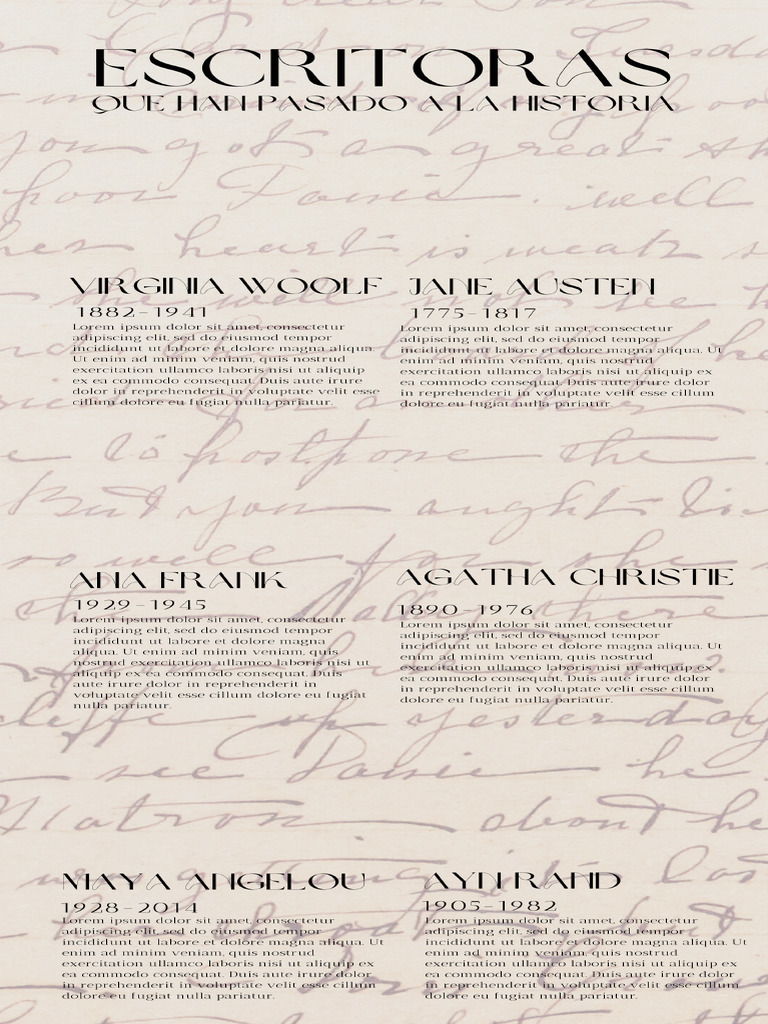 ESCRITORAS
QUE HAN PASADO A LA HISTORIA
VIRGINIA WOOLF
1882-1941
Lorem ipsum dolor sit amet, consectetur
adipiscing elit, sed do eiusmod tempor
incididunt ut labore et dolore magna aliqua.
Ut enim ad minim veniam, quis nostrud
exercitation ullamco laboris nisi ut aliquip
ex ea commodo consequat. Duis aute irure
dolor in reprehenderit in voluptate velit esse
cillum dolore eu fugiat nulla pariatur.
JANE AUSTEN
1775-1817
Lorem ipsum dolor sit amet, consectetur
adipiscing elit, sed do eiusmod tempor
incididunt ut labore et dolore magna aliqua. Ut
enim ad minim veniam, quis nostrud
exercitation ullamco laboris nisi ut aliquip ex
ea commodo consequat. Duis aute irure dolor
in reprehenderit in voluptate velit esse cillum
dolore eu fugiat nulla pariatur.
ANA FRANK
1929-1945
Lorem ipsum dolor sit amet, consectetur
adipiscing elit, sed do eiusmod tempor
incididunt ut labore et dolore magna
aliqua. Ut enim ad minim veniam, quis
nostrud exercitation ullamco laboris nisi ut
aliquip ex ea commodo consequat. Duis
aute irure dolor in reprehenderit in
voluptate velit esse cillum dolore eu fugiat
nulla pariatur.
AGATHA CHRISTIE
1890-1976
Lorem ipsum dolor sit amet, consectetur
adipiscing elit, sed do eiusmod tempor
incididunt ut labore et dolore magna aliqua. Ut
enim ad minim veniam, quis nostrud
exercitation ullamco laboris nisi ut aliquip ex
ea commodo consequat. Duis aute irure dolor
in reprehenderit in voluptate velit esse cillum
dolore eu fugiat nulla pariatur.
MAYA ANGELOU
1928-2014
Lorem ipsum dolor sit amet, consectetur
adipiscing elit, sed do eiusmod tempor
incididunt ut labore et dolore magna aliqua. Ut
enim ad minim veniam, quis nostrud
exercitation ullamco laboris nisi ut aliquip ex
ea commodo consequat. Duis aute irure dolor
in reprehenderit in voluptate velit esse cillum
dolore eu fugiat nulla pariatur.
AYN RAND
1905-1982
Lorem ipsum dolor sit amet, consectetur
adipiscing elit, sed do eiusmod tempor
incididunt ut labore et dolore magna aliqua. Ut
enim ad minim veniam, quis nostrud
exercitation ullamco laboris nisi ut aliquip ex
ea commodo consequat. Duis aute irure dolor
in reprehenderit in voluptate velit esse cillum
dolore eu fugiat nulla pariatur.
you got a great
poor
well
her heart is weak
to postpone the
But you ought
see
he
about he